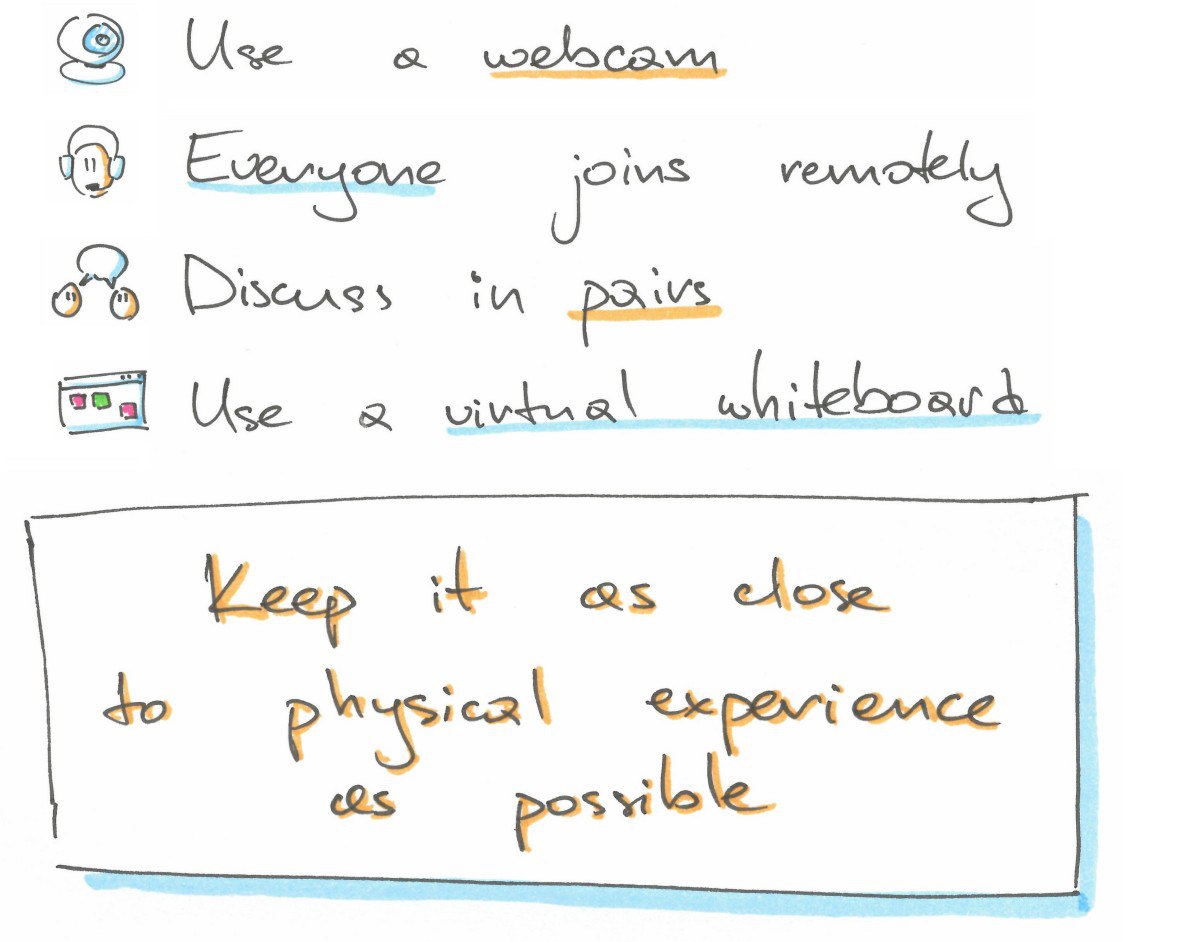 Use a webcam
Everyone joins remotely
Discuss in pairs
Use a virtual whiteboard
Keep it as close
to physical experience
as possible